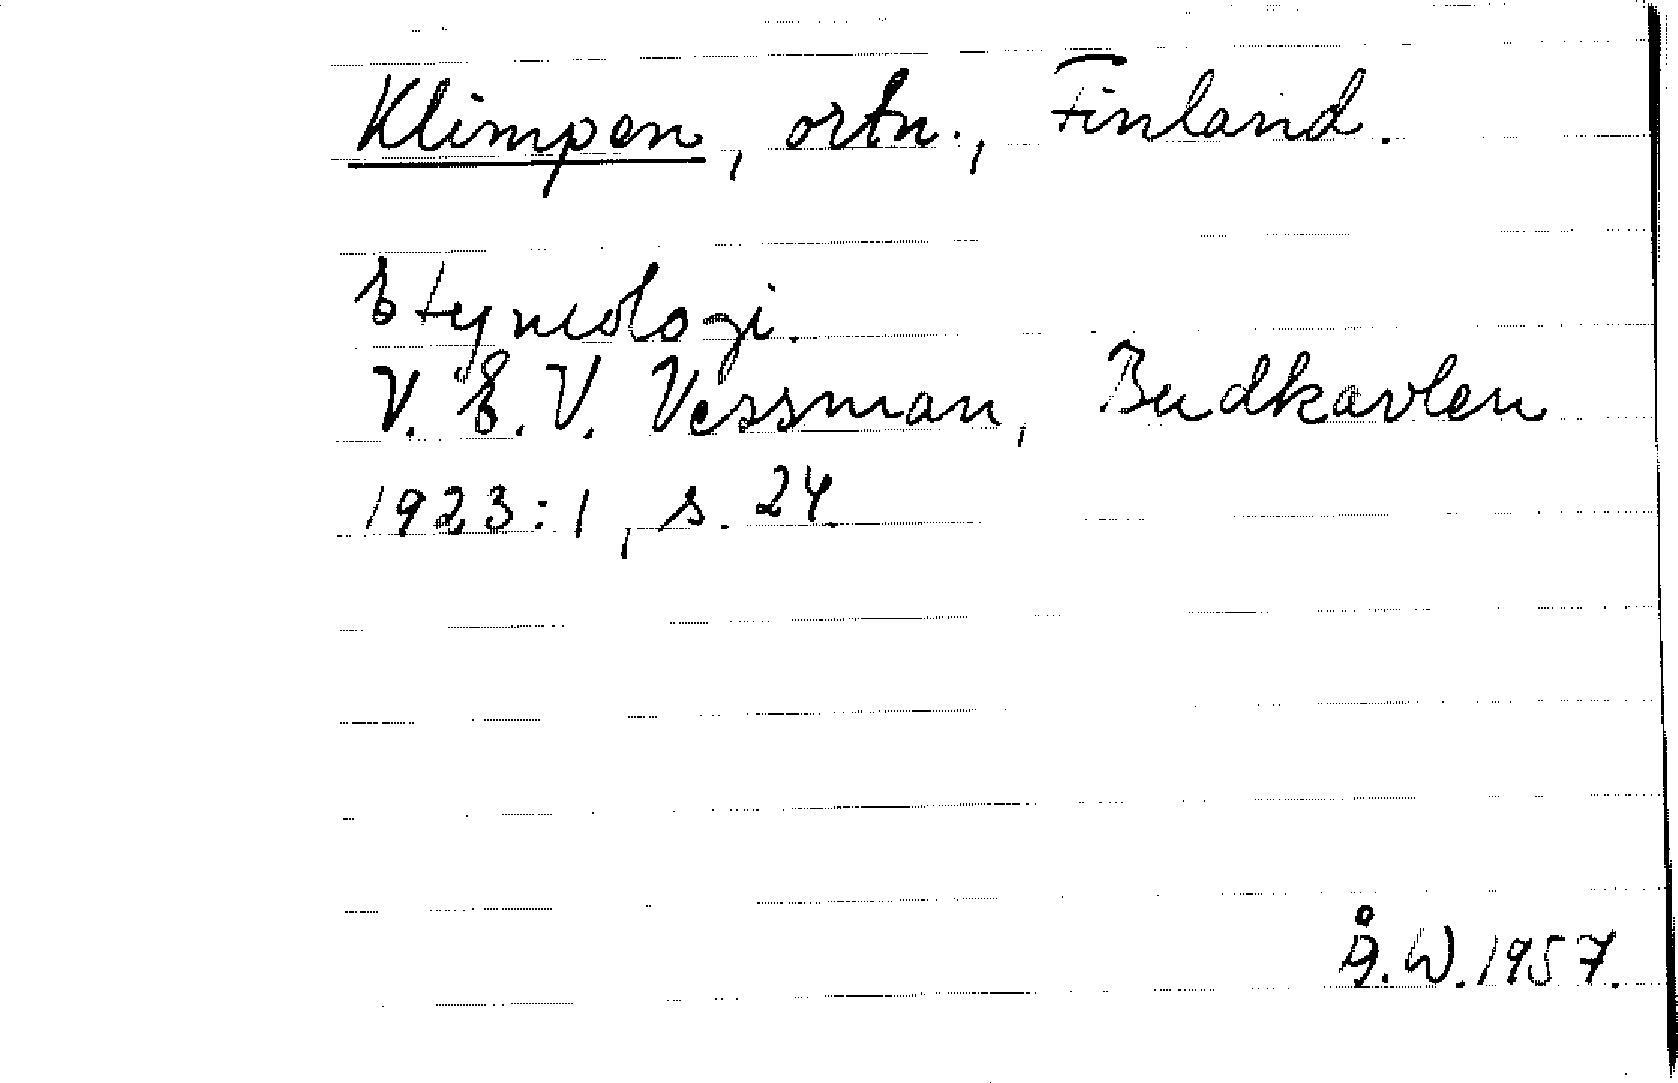 Klimpen, ortn., Finland.
Etymologi.
V. E. V. Vessman, Budkavlen
1923:1, s. 24.
Å. W. 1957.